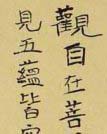 觀自在菩
見五蘊皆